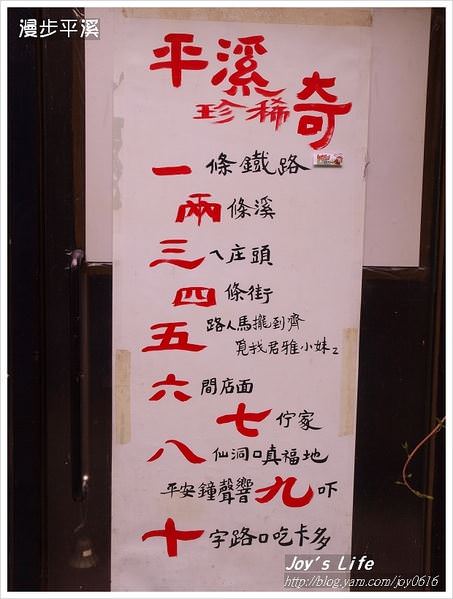 漫步平溪
平溪
珍稀奇
一條鐵路
兩條溪
三ㄟ庄頭
四條街
五路人馬攏到齊
覓找君雅小妹2
六間店面
七佇家
八仙洞口真福地
平安鐘聲響九吓
十字路口吃卡多
Joy's Life
http://blog.yam.com/joy0616